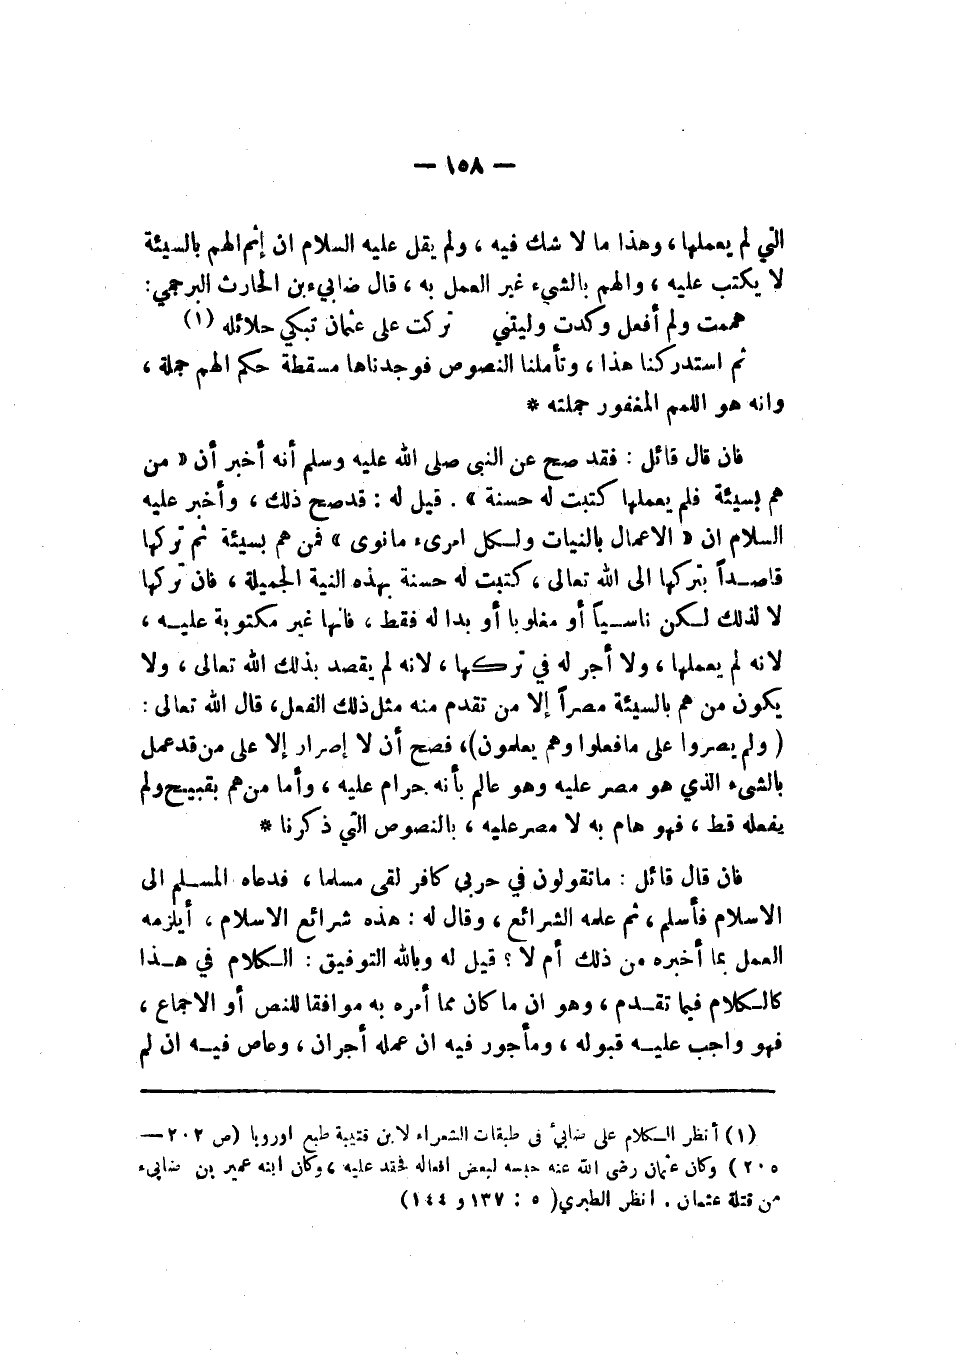 — ١٥٨ —
التي لم يعملها، وهذا ما لا شك فيه، ولم يقل عليه السلام ان إثم الهم بالسيئة
لا يكتب عليه، والهم بالشيء غير العمل به، قال ضابيء بن الحارث البرجمي:
هممت ولم أفعل وكدت وليتني تركت على عثمان تبكي حلائله (١)
ثم استدركنا هذا، وتأملنا النصوص فوجدناها مسقطة حكم الهم جملة،
وانه هو اللمم المغفور جملته *
فان قال قائل: فقد صح عن النبى صلى الله عليه وسلم أنه أخبر أن « من
هم بسيئة فلم يعملها كتبت له حسنة ». قيل له: قد صح ذلك، وأخبر عليه
السلام ان « الاعمال بالنيات ولكل امرىء مانوى » فمن هم بسيئة ثم تركها
قاصداً بتركها الى الله تعالى، كتبت له حسنة بهذه النية الجميلة، فان تركها
لا لذلك لكن ناسياً أو مغلوبا أو بدا له فقط، فانها غير مكتوبة عليه،
لانه لم يعملها، ولا أجر له في تركها، لانه لم يقصد بذلك الله تعالى، ولا
يكون من هم بالسيئة مصراً إلا من تقدم منه مثل ذلك الفعل، قال الله تعالى:
( ولم يصروا على مافعلوا وهم يعلمون)، فصح أن لا إصرار إلا على من قد عمل
بالشىء الذي هو مصر عليه وهو عالم بأنه حرام عليه، وأما من هم بقبيح ولم
يفعله قط، فهو هام به لا مصر عليه، بالنصوص التي ذكرنا *
فان قال قائل: ماتقولون في حربي كافر لقى مسلما، فدعاه المسلم الى
الاسلام فأسلم، ثم علمه الشرائع، وقال له: هذه شرائع الاسلام، أيلزمه
العمل بما أخبره من ذلك أم لا؟ قيل له وبالله التوفيق: الكلام في هذا
كالكلام فيما تقدم، وهو ان ما كان مما أمره به موافقا للنص أو الاجماع،
فهو واجب عليه قبوله، ومأجور فيه ان عمله أجران، وعاص فيه ان لم
(١) أنظر الكلام على ضابيء فى طبقات الشعراء لابن قتيبة طبع اوروبا (ص ٢٠٢—
٢٠٥) وكان عثمان رضى الله عنه حبسه لبعض افعاله فحقد عليه، وكان ابنه عمير بن ضابيء
من قتلة عثمان. انظر الطبري( ٥ : ١٣٧ و ١٤٤)